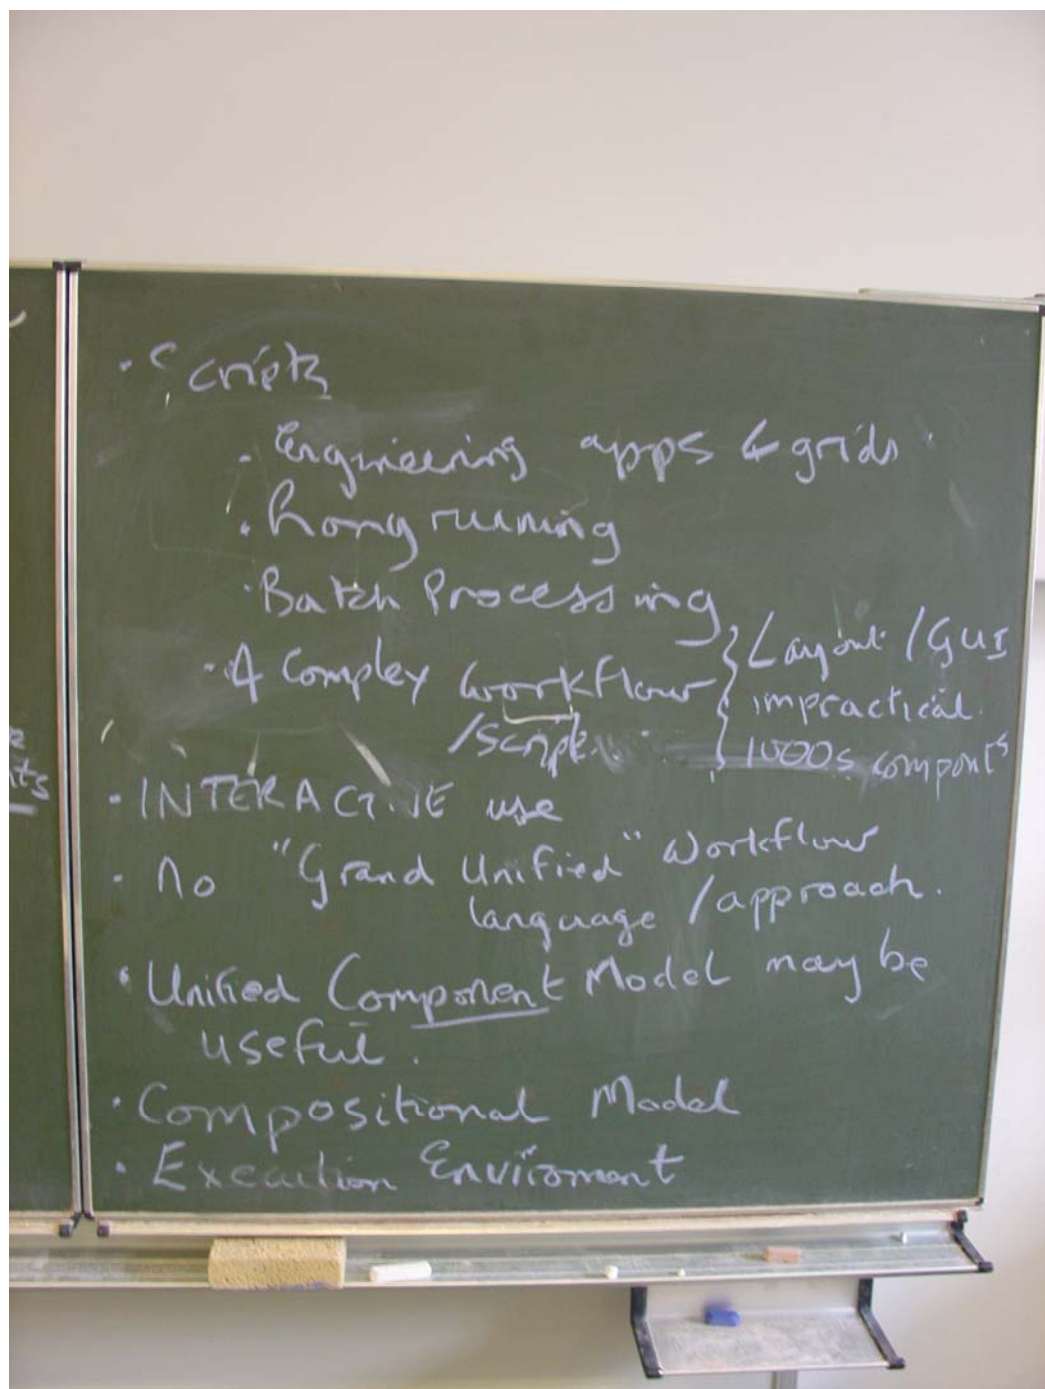 · Scripts
· Engineering apps & grids
· Long running
· Batch Processing
· 4 Complex Workflow
/script
} Layout / GUI
impractical.
1000s componts
· INTERACTIVE use
· No "Grand Unified" Workflow
language / approach.
· Unified Component Model may be
useful.
· Compositional Model
· Execution Enviroment
ts